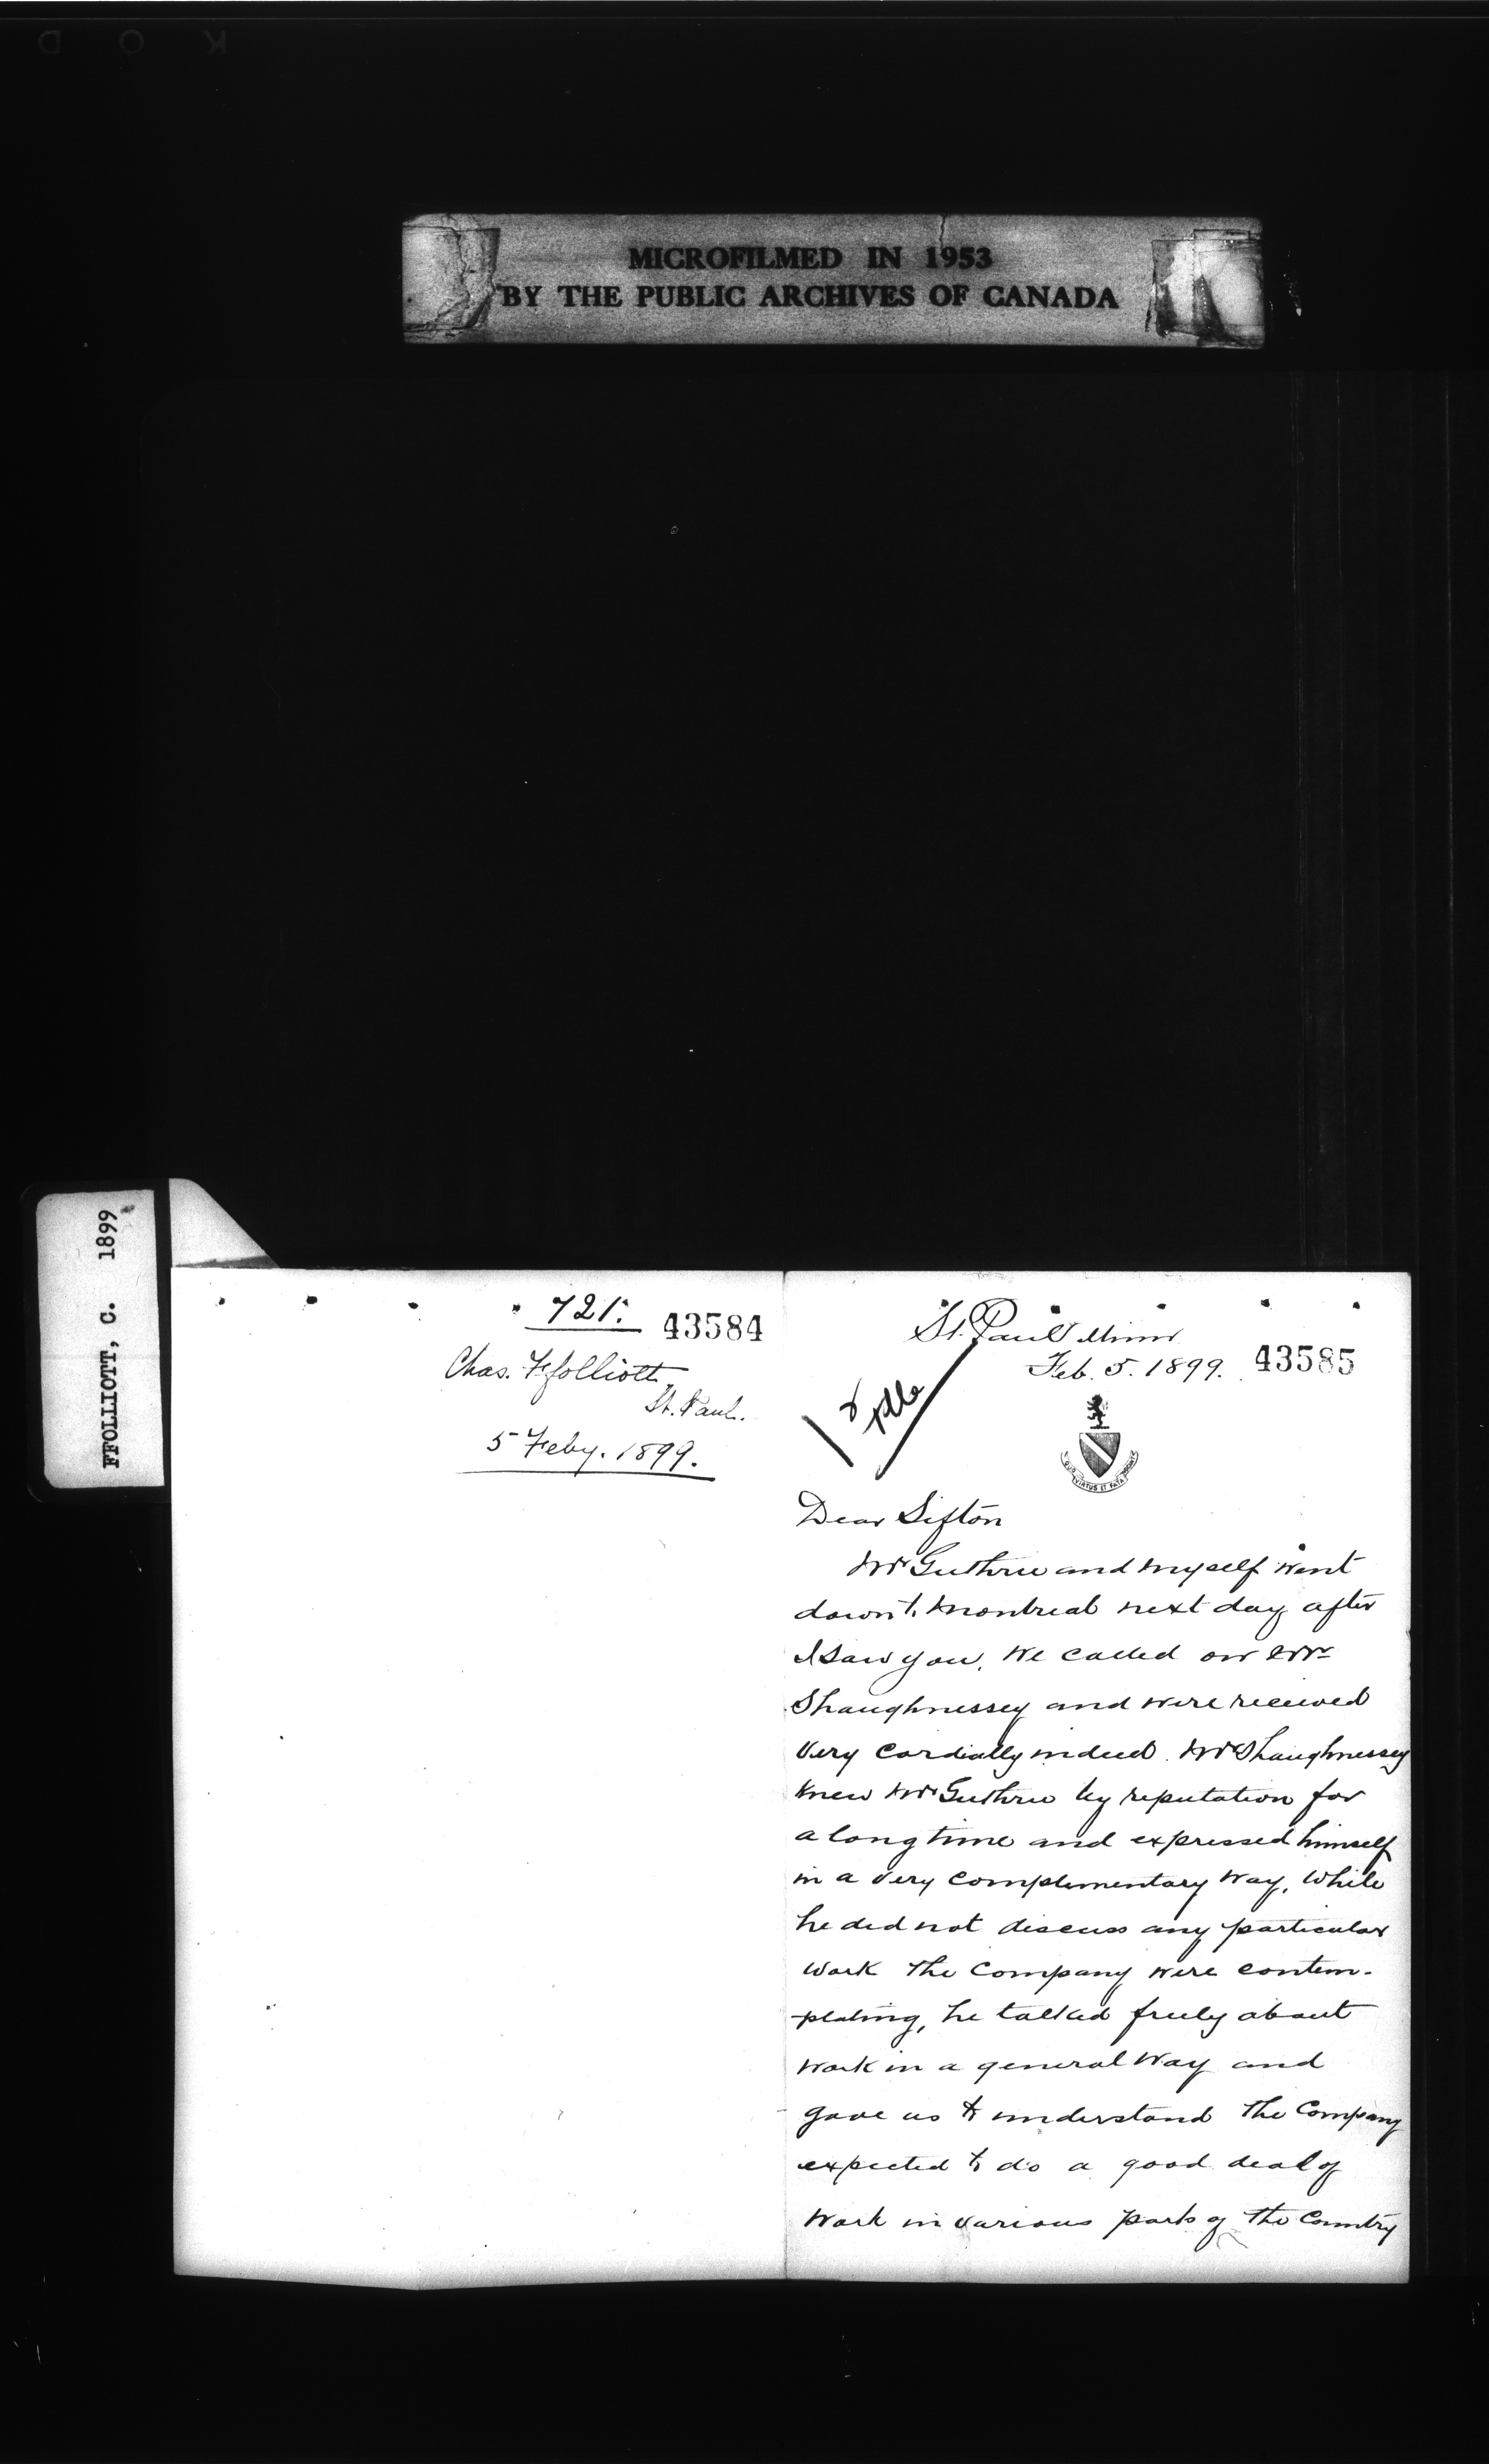 MICROFILMED IN 1953
BY THE PUBLIC ARCHIVES OF CANADA
FFOLLIOTT, C. 1899
721.
43584
Chas. Ffolliott
St. Paul.
5 Feby. 1899.
St. Paul Minn
Feb. 5. 1899.
43585
VIRTUS ET FATA
Dear Sifton
Mr Guthrie and myself went
down to Montreal next day after
I saw you. We called on Mr
Shaughnessey and were received
very cordially indeed. Mr Shaughnessey
knew Mr Guthrie by reputation for
a long time and expressed himself
in a very complimentary way, while
he did not discuss any particular
work the Company were contem-
plating, he talked freely about
work in a general way and
gave us to understand the Company
expected to do a good deal of
work in various parts of the Country